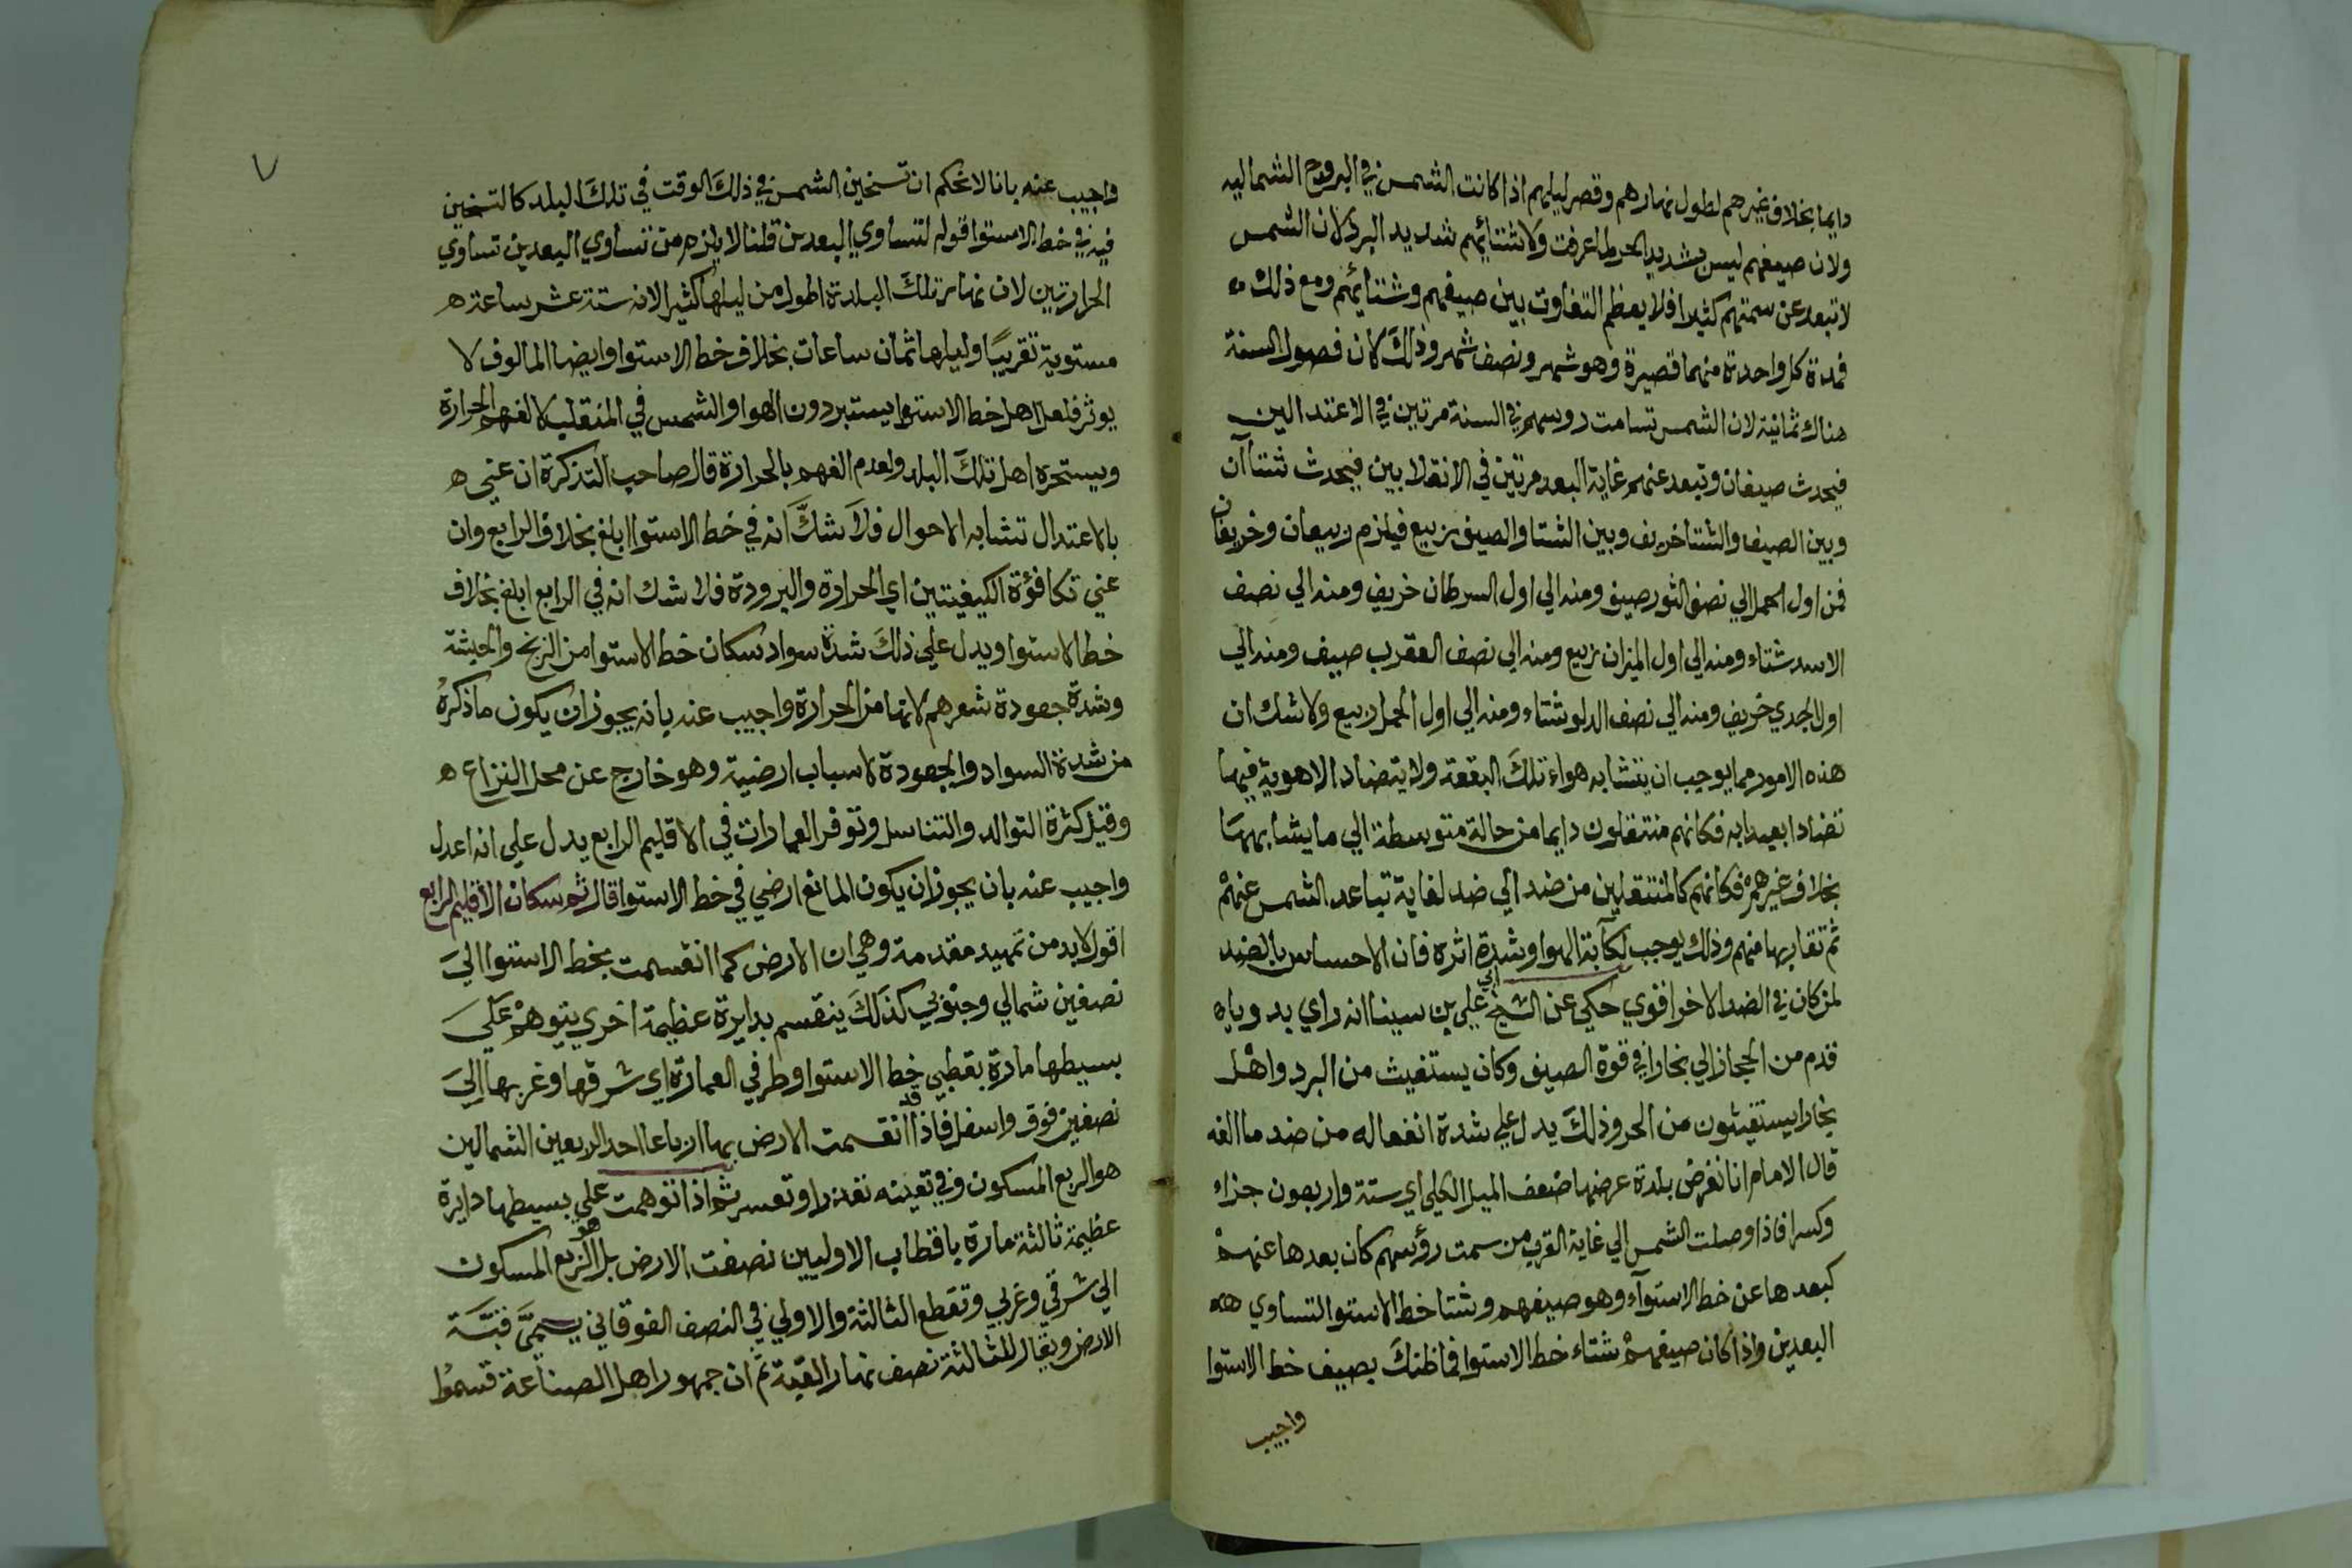 دايما بخلاف غيرهم لطول نهارهم وقصر ليلهم اذا كانت الشمس في البروج الشماليه
ولان صيفهم ليس بشديد الحر لما عرفت ولا شتائهم شديد البرد لان الشمس
لا تبعد عن سمتهم كثيرا فلا يعظم التفاوت بين صيفهم وشتائهم ومع ذلك
فمدة كل واحدة منهما قصيرة وهو شهر ونصف شهر وذلك كان فصول السنة
هناك ثمانية لان الشمس تسامت روسهم في السنة مرتين في الاعتدالين
فيحدث صيفان وتبعد عنهم غاية البعد مرتين في الانقلابين فيحدث شتاآن
وبين الصيف والشتا خريف وبين الشتا والصيف ربيع فيلزم ربيعان وخريفان
فمن اول الحمل الي نصف الثور صيف ومنه الي اول السرطان خريف ومنه الي نصف
الاسد شتاء ومنه الي اول الميزان ربيع ومنه الي نصف العقرب صيف ومنه الي
اول الجدي خريف ومنه الي نصف الدلو شتاء ومنه الي اول الحمل ربيع ولا شك ان
هذه الامور مما يوجب ان يتشابه هواء تلك البقعة ولا يتضاد الاهوية فيها
تضادا بعيدا به فكانهم منتقلون دايما من حالة متوسطة الي ما يشابهها
بخلاف غيرهم فكانهم كالمنتقلين من ضد الي ضد لغاية تباعد الشمس عنهم
ثم تقاربها منهم وذلك يوجب لكآبة الهوا وشدة اثره فان الاحساس بالضد
لمن كان في الضد الاخر اقوي حكي عن الشيخ ابي علي بن سينا انه راي بدويا
قدم من الحجاز الي بخارا في قوة الصيف وكان يستغيث من البرد واهل
بخارا يستغيثون من الحر وذلك يدل علي شدة انفعاله من ضد ما الفه
قال الامام انا نفرض بلدة عرضها ضعف الميل الكلي اي ستة واربعون جزاء
وكسرا فاذا وصلت الشمس الي غاية القرب من سمت رؤسهم كان بعدها عنهم
كبعدها عن خط الاستوآء وهو صيفهم وشتا خط الاستوا لتساوي
البعدين واذا كان صيفهم شتاء خط الاستوا فما ظنك بصيف خط الاستوا
واجيب
٧
واجيب عنه بانا لا نحكم ان تسخين الشمس في ذلك الوقت في تلك البلد كالتسخين
فيه في خط الاستوا قوله لتساوي البعدين قلنا لا يلزم من تساوي البعدين تساوي
الحرارتين لان نهار تلك البلدة اطول من ليلها كثيرا لانه ستة عشر ساعة
مستوية تقريبًا وليلها ثمان ساعات بخلاف خط الاستوا وايضا المالوف لا
يوثر فلعل اهل خط الاستوا يستبردون الهوا والشمس في المنقلب لالفهم الحرارة
ويستحره اهل تلك البلد ولعدم الفهم بالحرارة قال صاحب التذكرة ان عني
بالاعتدال تشابه الاحوال فلا شك انه في خط الاستوا ابلغ بخلاف الرابع وان
عني تكافؤة الكيفيتين اي الحرارة والبرودة فلا شك انه في الرابع ابلغ بخلاف
خط الاستوا ويدل علي ذلك شدة سواد سكان خط الاستوا من الزنج والحبشة
وشدة جعودة شعرهم لانها من الحرارة واجيب عنه بانه يجوز ان يكون ما ذكره
من شدة السواد والجعودة لاسباب ارضية وهو خارج عن محل النزاع
وقيل كثرة التوالد والتناسل وتوفر العمارات في الاقليم الرابع يدل علي انه اعدل
واجيب عنه بان يجوز ان يكون المانع ارضي في خط الاستوا قال ثم سكان الاقليم الرابع
اقول لابد من تمهيد مقدمة وهي ان الارض كما انقسمت بخط الاستوا الي
نصفين شمالي وجنوبي كذلك ينقسم بدايرة عظيمة اخري يتوهم علي
بسيطها مارة بقطبي خط الاستوا وطرفي العمارة اي شرقها وغربها الي
نصفين فوق واسفل فاذا قد انقسمت الارض بها ارباعا احد الربعين الشمالين
هو الربع المسكون وفي تعينه تعذر او تعسر ثم اذا توهمت علي بسيطها دايرة
عظيمة ثالثة مارة باقطاب الاوليين نصفت الارض بل الربع المسكون
الي شرقي وغربي وتقطع الثالثة والاولي في النصف الفوقاني يسمي قبة
الارض ويقال للثالثة نصف نهار القبة ثم ان جمهور اهل الصناعة قسموا